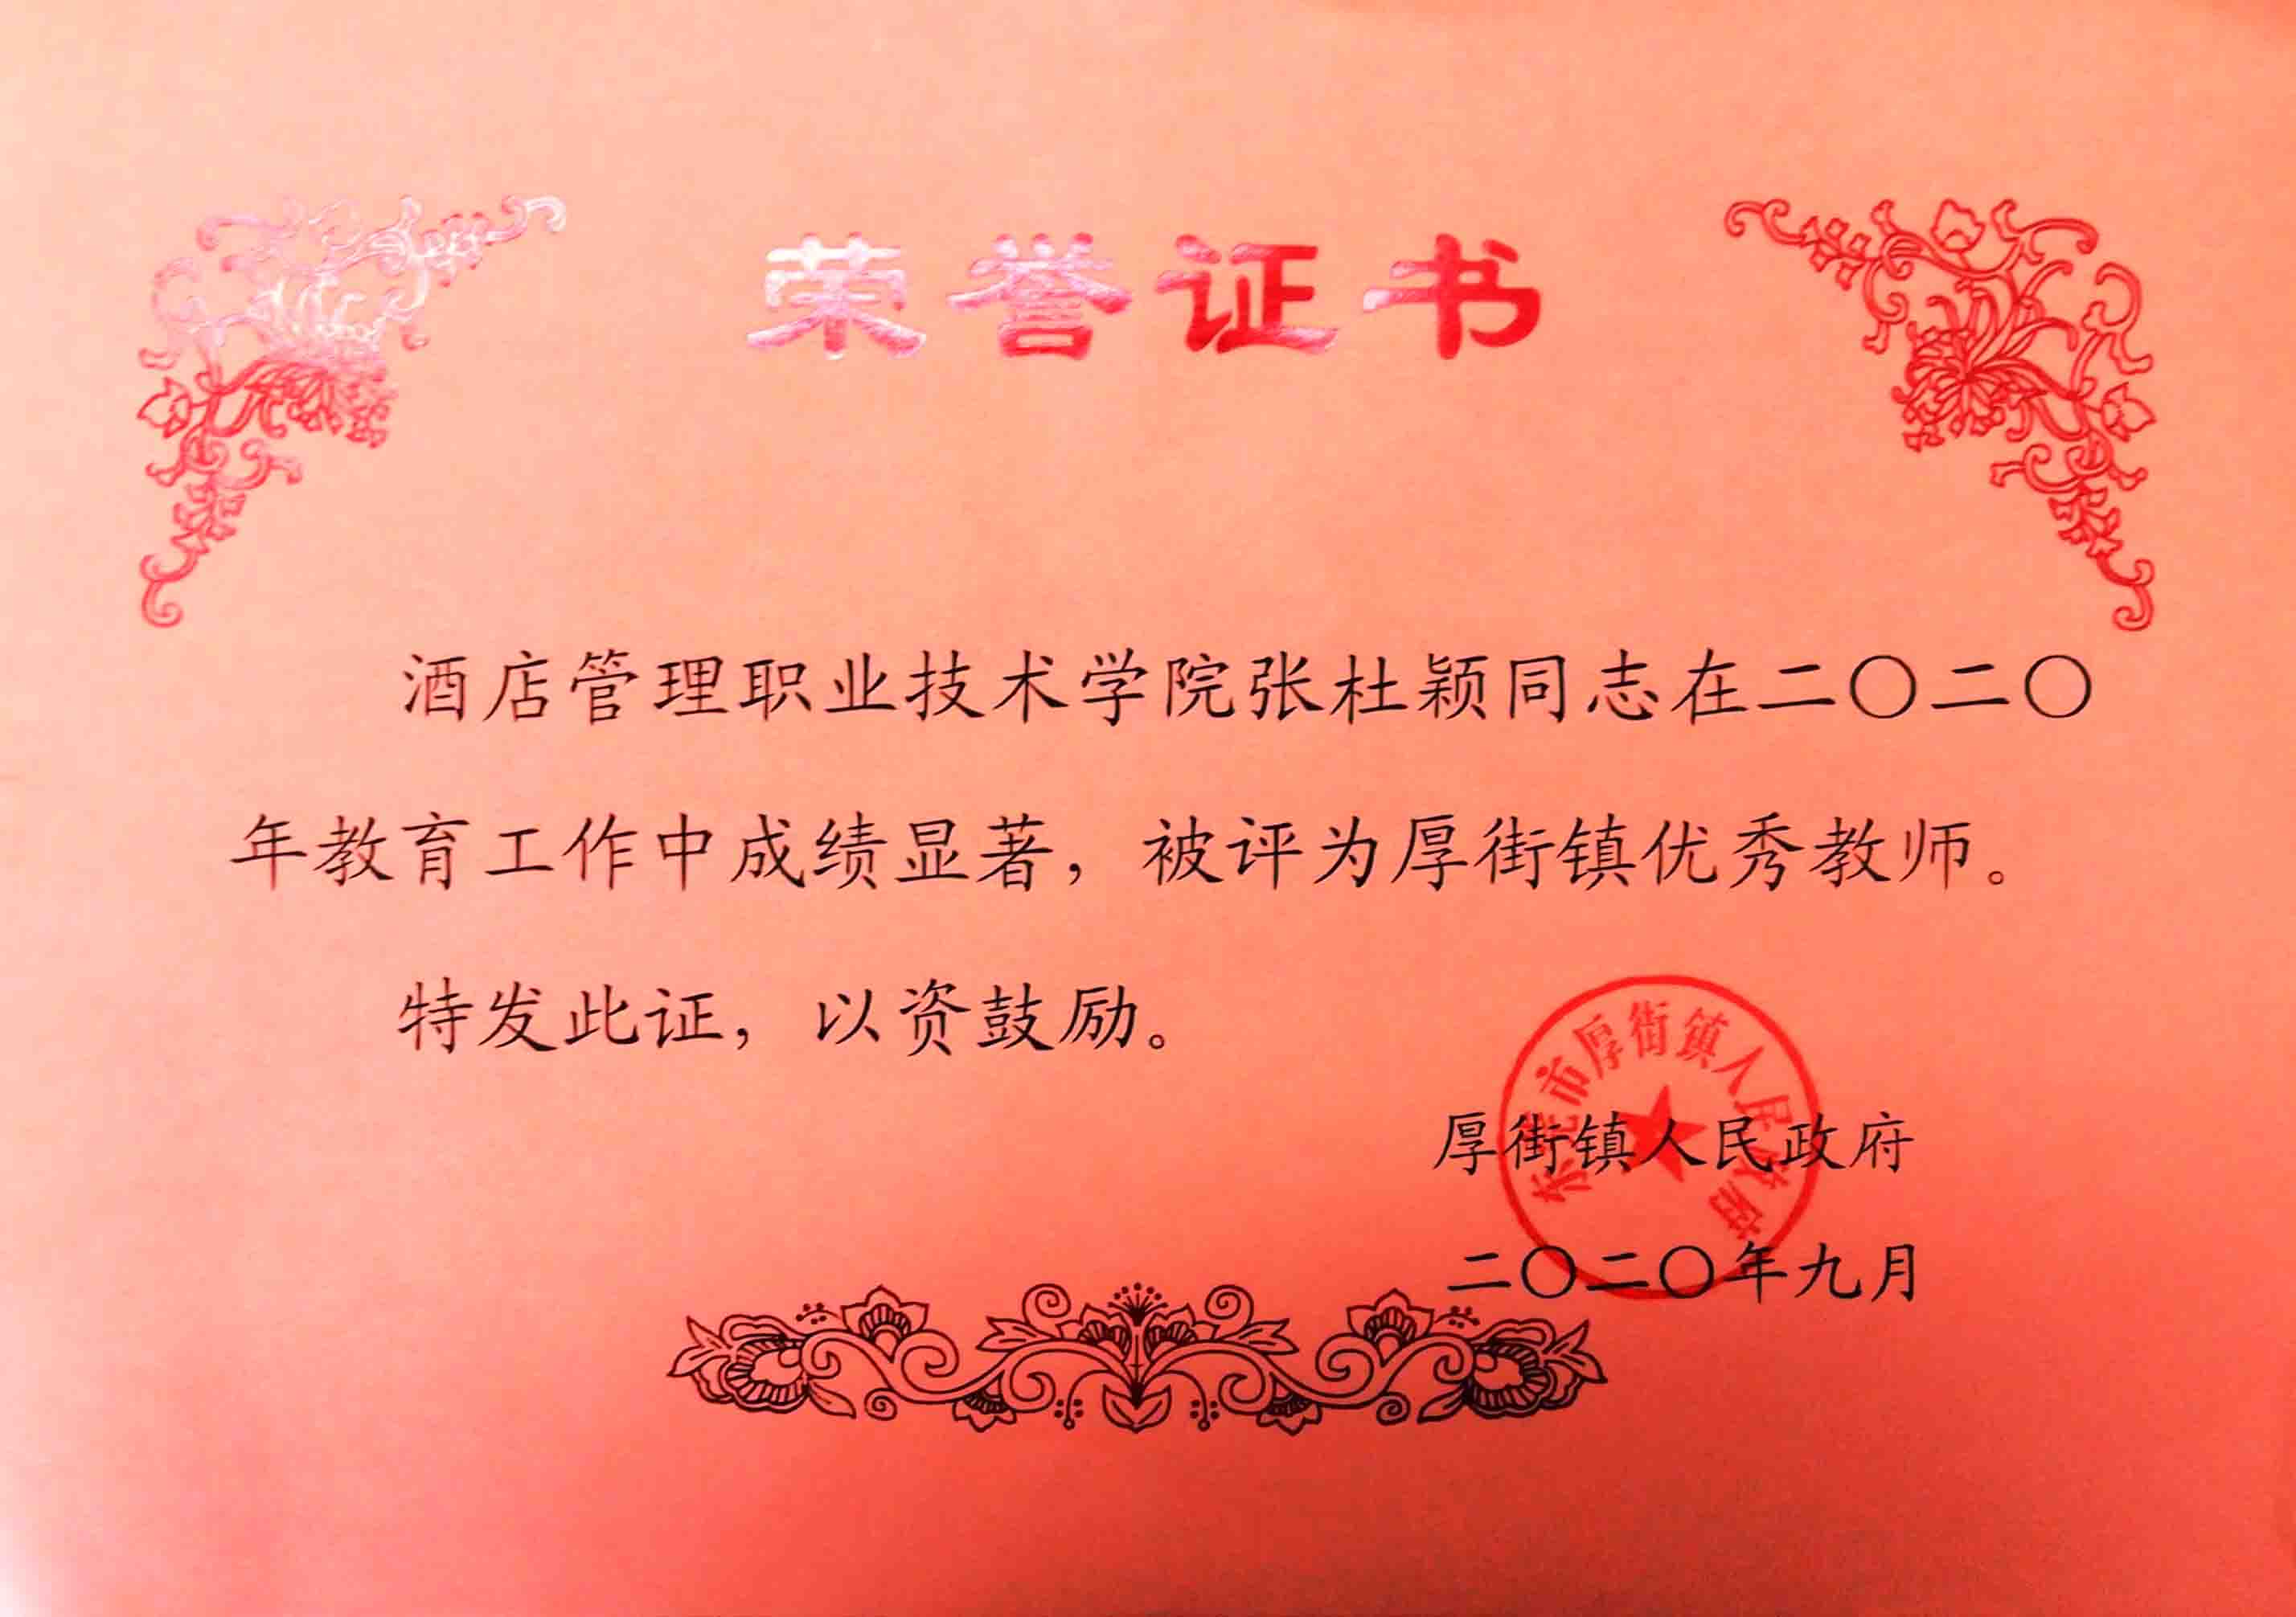 荣誉证书
酒店管理职业技术学院张杜颖同志在二〇二〇
年教育工作中成绩显著，被评为厚街镇优秀教师。
特发此证，以资鼓励。
东莞市厚街镇人民政府
厚街镇人民政府
二〇二〇年九月